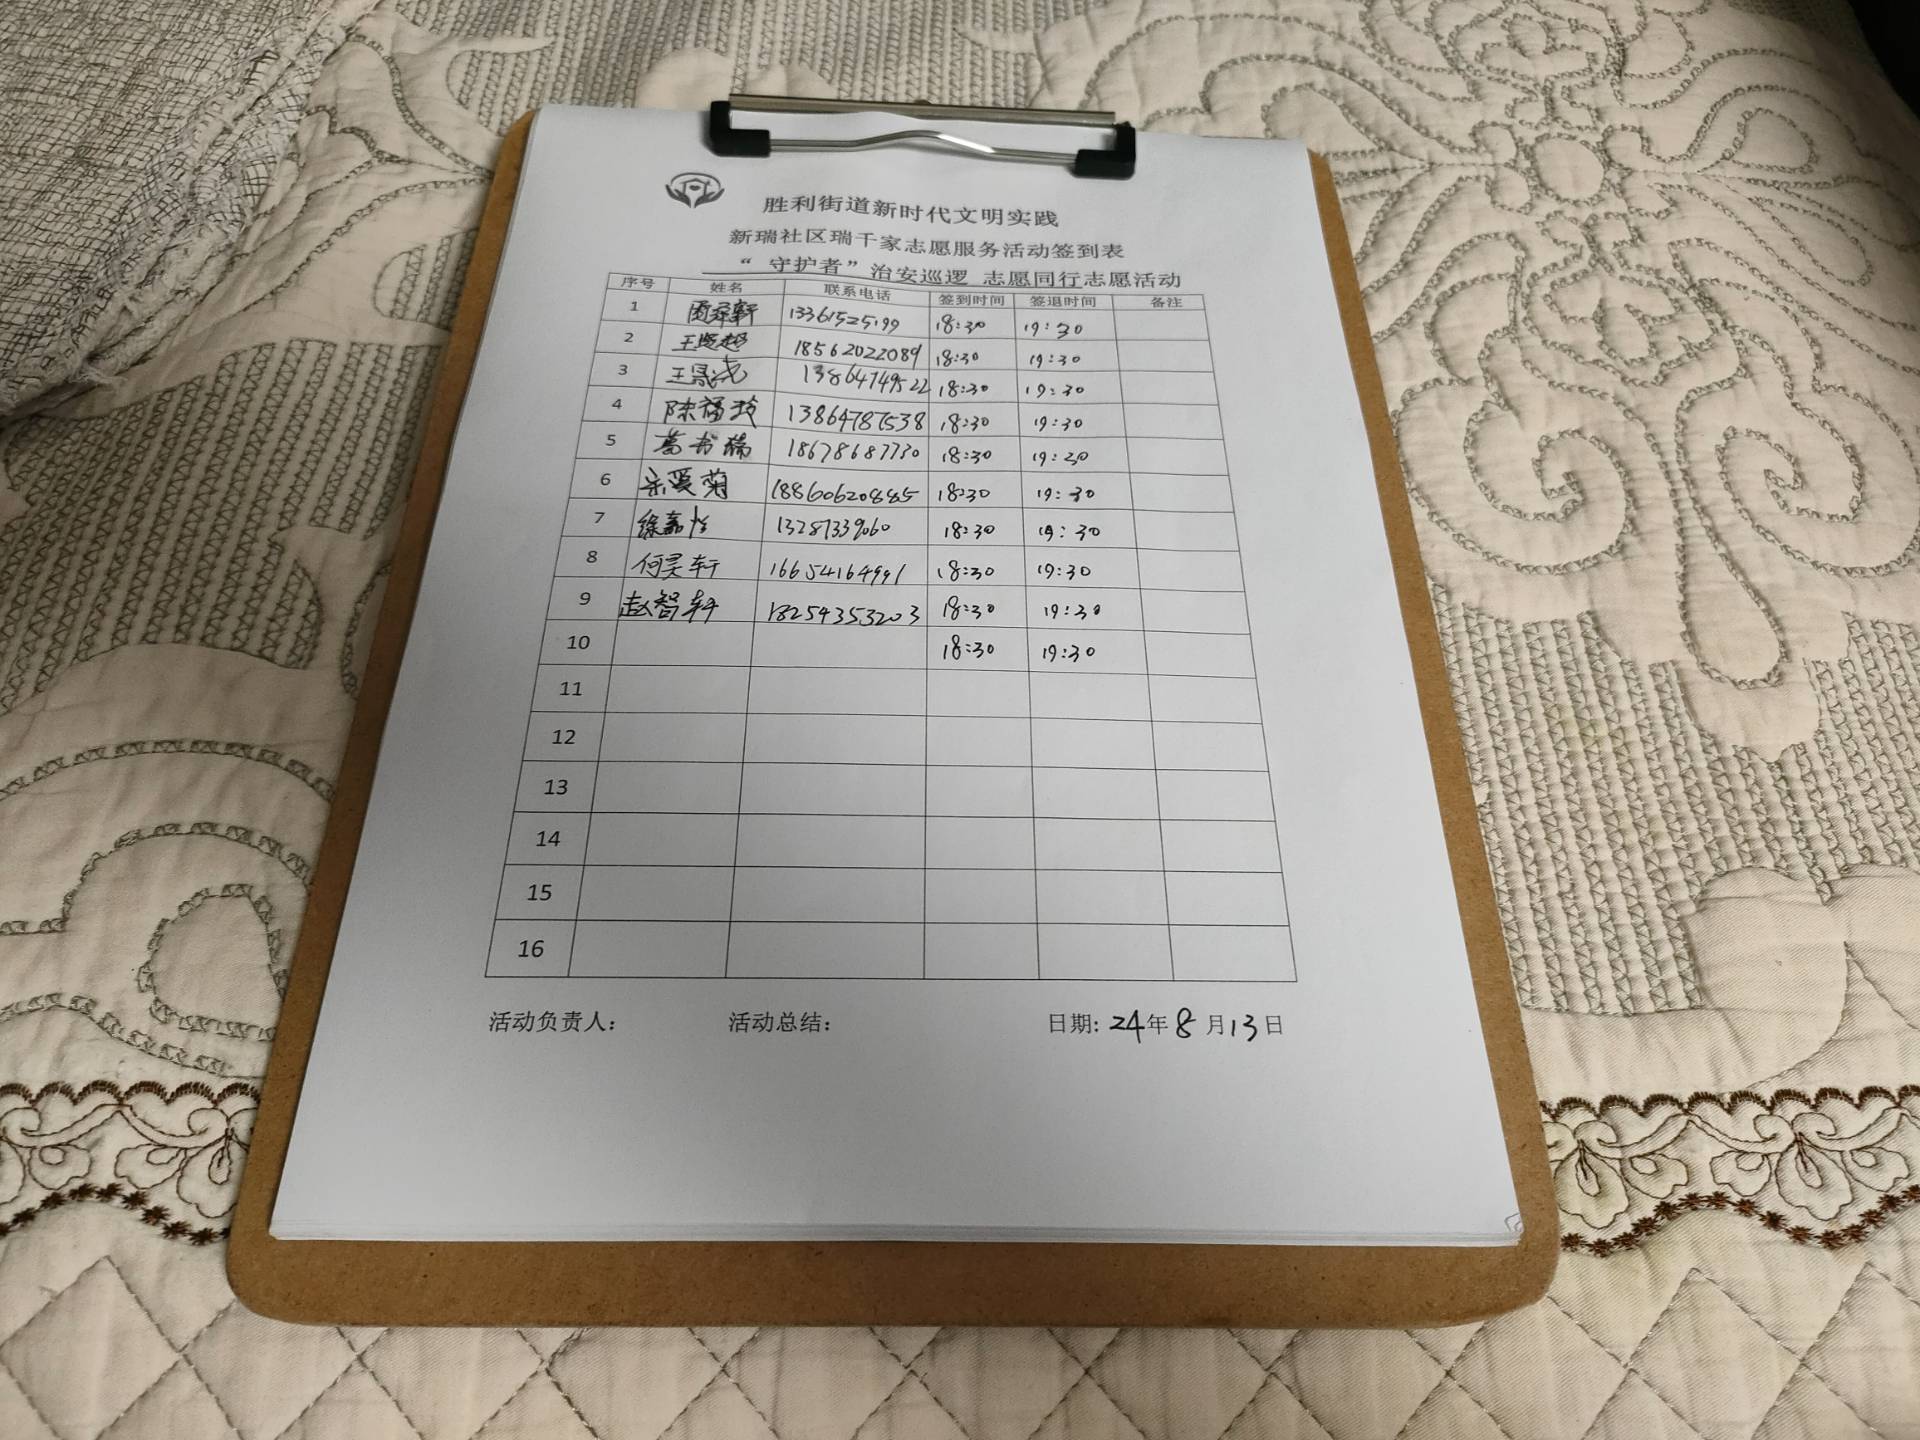 胜利街道新时代文明实践
新瑞社区瑞千家志愿服务活动签到表
“ 守护者”治安巡逻 志愿同行志愿活动
序号 姓名 联系电话 签到时间 签退时间 备注
1 13361525199 18:30 19:30
2 18562022089 18:30 19:30
3 13864749522 18:30 19:30
4 陈福玲 13864787538 18:30 19:30
5 葛书瑞 18678687730 18:30 19:30
6 宋爱菊 18860620885 18:30 19:30
7 徐嘉怡 13287339060 18:30 19:30
8 何昊轩 16654164991 18:30 19:30
9 赵智轩 18254353203 18:30 19:30
10 18:30 19:30
11
12
13
14
15
16
活动负责人： 活动总结： 日期: 24年8月13日